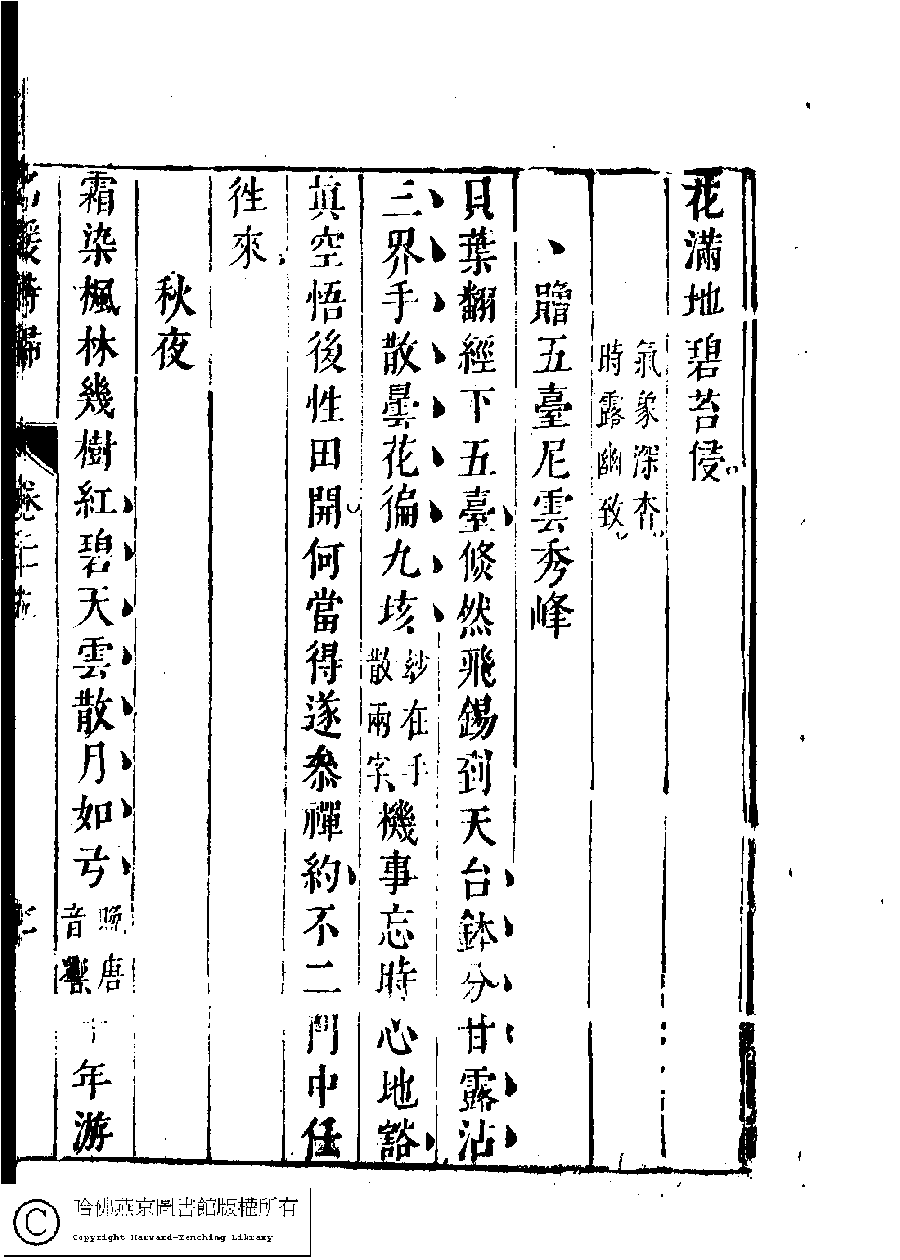 花滿地碧苔侵
氣象深杳
時露幽致
贈五臺尼雲秀峰
貝葉翻經下五臺倐然飛錫到天台鉢分甘露沾
三界手散曇花徧九垓妙在手
散兩字機事忘時心地豁
真空悟後性田開何當得遂叅禪約不二門中任
徃來
秋夜
霜染楓林幾樹紅碧天雲散月如弓晚唐
音響十年游
名媛詩歸
卷二十五
哈佛燕京圖書館版權所有
Copyright Harvard-Yenching Library